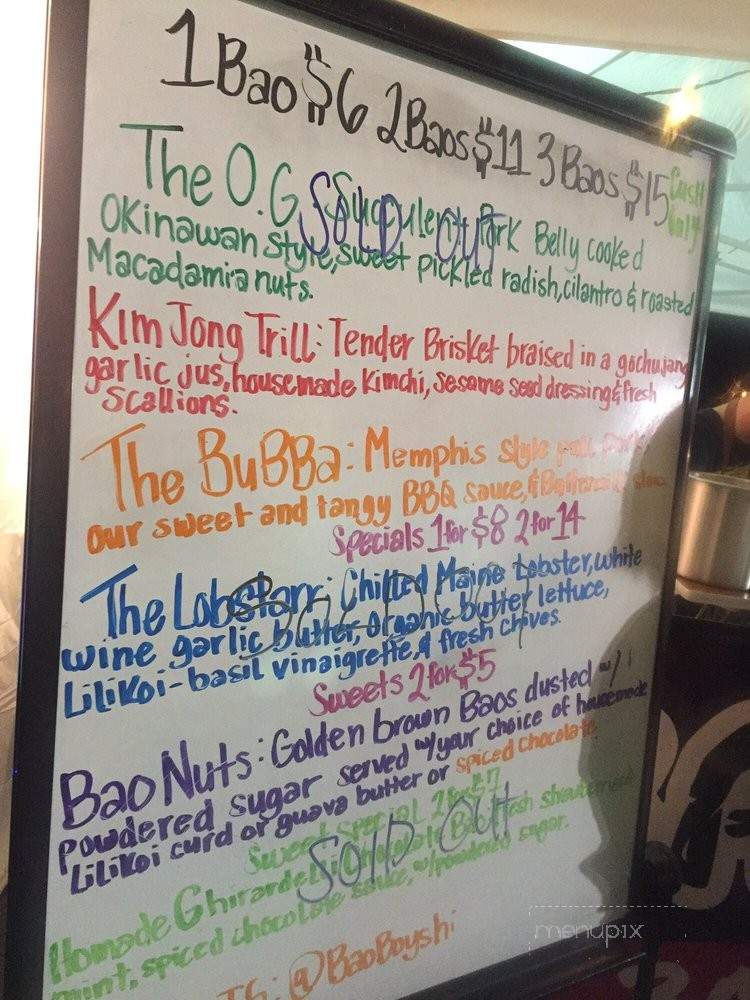 1 Bao $6 2 Baos $11 3 Baos $15 Cash Only
The O.G. Succulent Pork Belly cooked
SOLD OUT
Okinawan style, sweet pickled radish, cilantro & roasted
Macadamia nuts.
Kim Jong Trill: Tender Brisket braised in a gochujang
garlic jus, housemade Kimchi, sesame seed dressing & fresh
scallions.
The BuBBa: Memphis style
our sweet and tangy BBQ sauce, &
Specials 1 for $8 2 for 14
The Lobstar: Chilled Maine Lobster, white
SOLD OUT
wine garlic butter, organic butter lettuce,
Lilikoi-basil vinaigrette, & fresh chives.
Sweets 2 for $5
Bao Nuts: Golden brown Baos dusted w/
powdered sugar served w/your choice of housemade
Lilikoi curd or guava butter or spiced chocolate
Sweet Special 2 for $7
SOLD OUT
Homade Ghirardelli chocolate Bao, fresh
mint, spiced chocolate sauce, w/powdered sugar.
IG: @BaoBoyshi
menupix